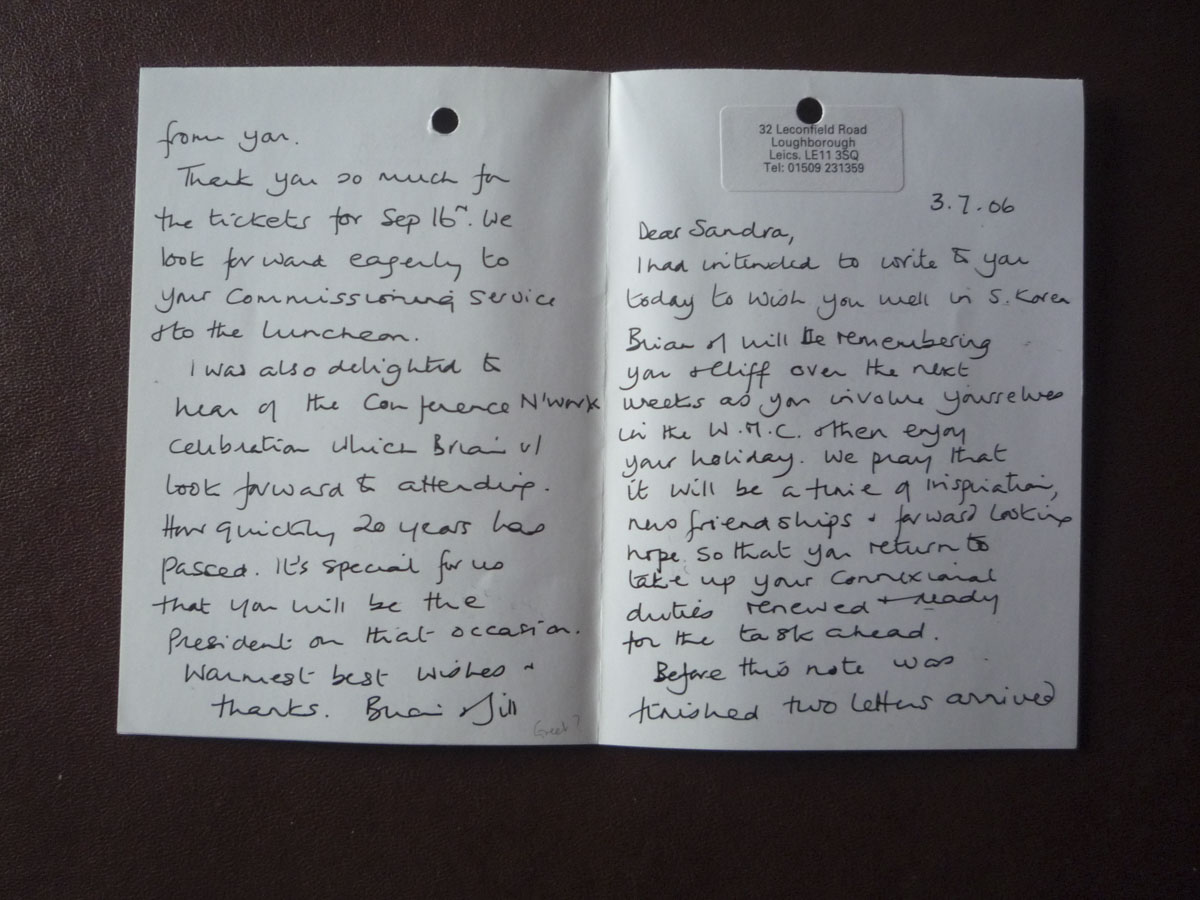 32 Leconfield Road
Loughborough
Leics. LE11 3SQ
Tel: 01509 231359
3.7.06
Dear Sandra,
I had intended to write to you
today to wish you well in S. Korea
Brian & I will be remembering
you & Cliff over the next
weeks as you involve yourselves
in the W.M.C. & then enjoy
your holiday. We pray that
it will be a time of inspiration,
new friendships & forward looking
hope. So that you return to
take up your Connexional
duties renewed & ready
for the task ahead.
Before this note was
finished two letters arrived
from you.
Thank you so much for
the tickets for Sep 16th. We
look forward eagerly to
your Commissioning Service
& to the luncheon.
I was also delighted to
hear of the Conference N'work
celebration which Brian & I
look forward to attending.
How quickly 20 years has
passed. It's special for us
that you will be the
President on that occasion.
Warmest best wishes &
thanks. Brian & Jill